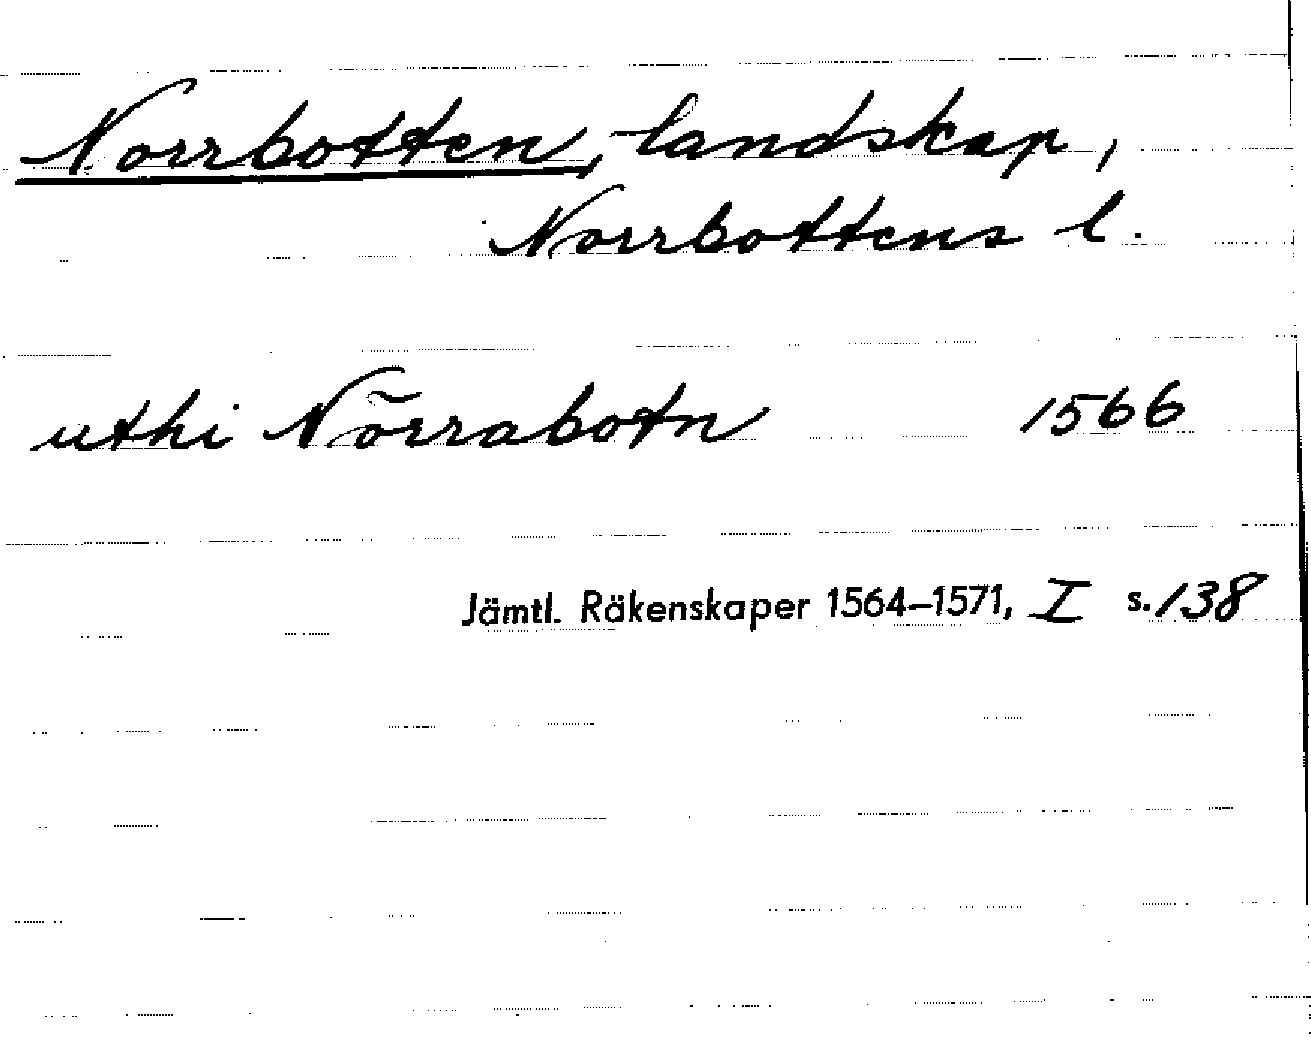 Norrbotten, landskap,
Norrbottens l.
uthi Nõrrabotn 1566
Jämtl. Räkenskaper 1564–1571, I s. 138